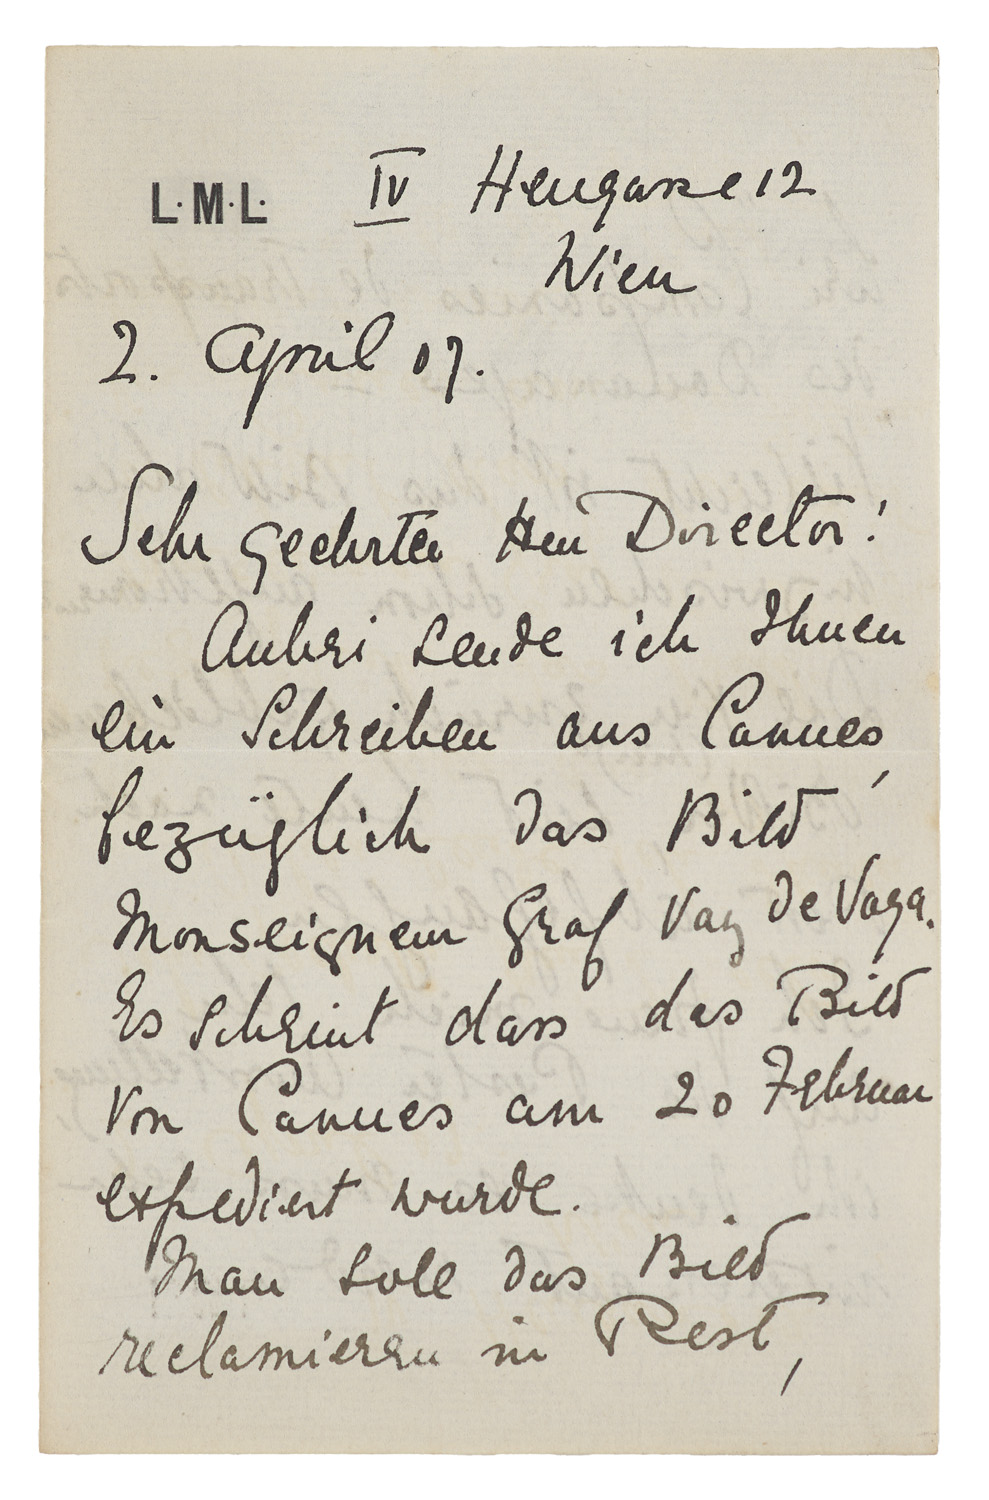 L·M·L· IV Heugasse 12
Wien
2. April 07.
Sehr geehrter Herr Director!
Anbei sende ich Ihnen
ein Schreiben aus Cannes,
bezüglich das Bild
Monseigneur Graf Vay de Vaya.
Es scheint dass das Bild
von Cannes am 20 Februar
expediert wurde.
Man solle das Bild
reclamieren in Pest,